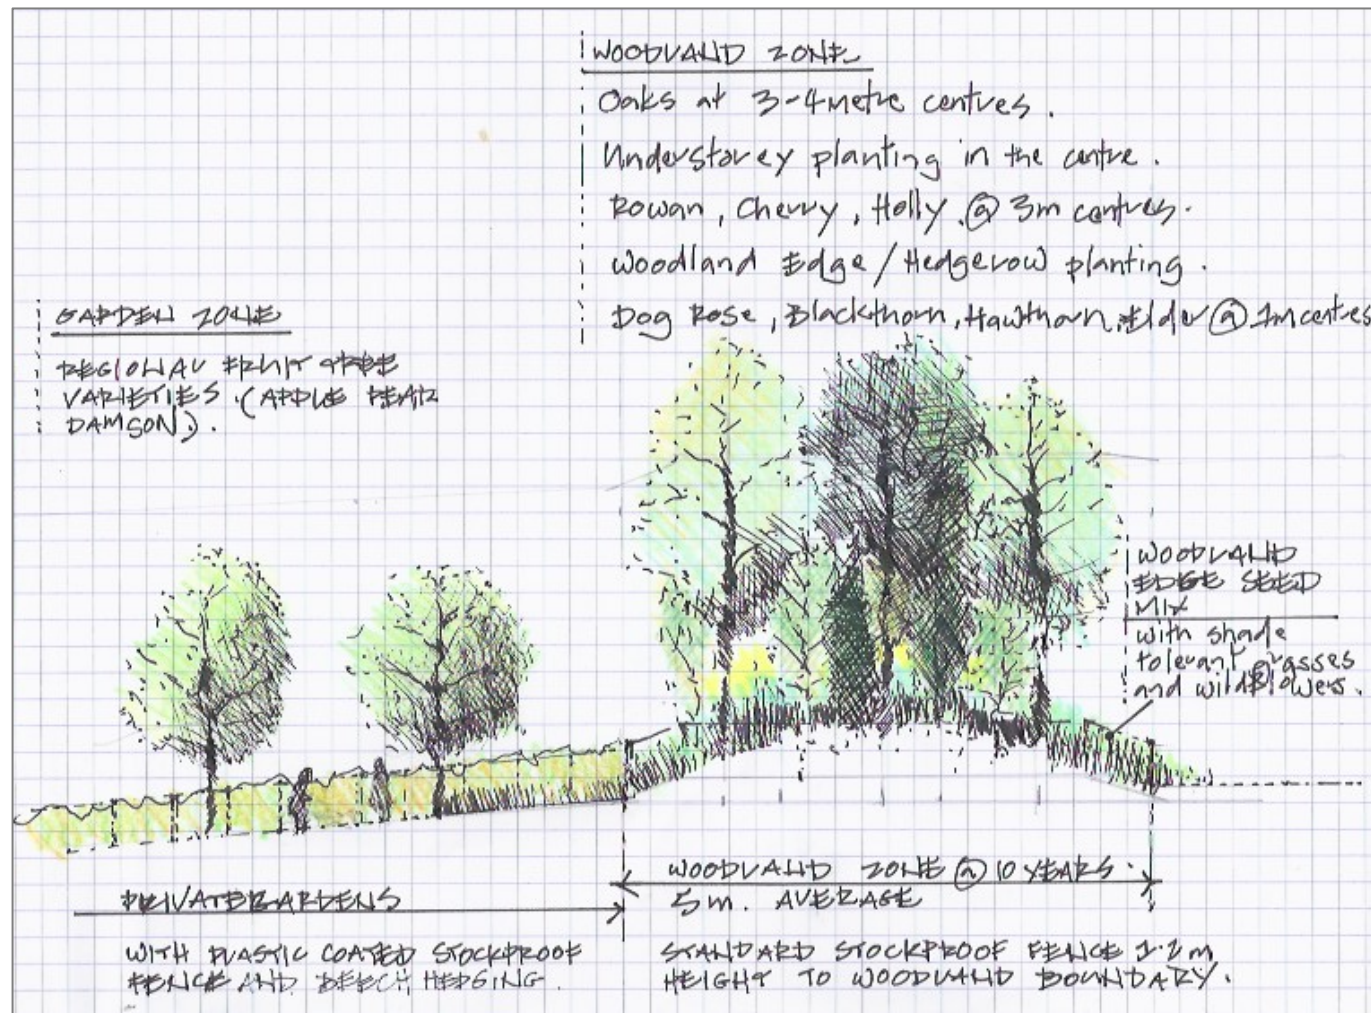 WOODLAND ZONE
Oaks at 3-4 metre centres.
Understorey planting in the centre.
Rowan, Cherry, Holly @ 3m centres.
Woodland Edge/Hedgerow planting.
Dog Rose, Blackthorn, Hawthorn, Elder @ 1m centres
GARDEN ZONE
REGIONAL FRUIT TREE
VARIETIES. (APPLE PEAR
DAMSON).
WOODLAND
EDGE SEED
MIX
with shade
tolerant grasses
and wildflowers.
WOODLAND ZONE @ 10 YEARS.
5m. AVERAGE
PRIVATE GARDENS
WITH PLASTIC COATED STOCKPROOF
FENCE AND BEECH HEDGING.
STANDARD STOCKPROOF FENCE 1.2m
HEIGHT TO WOODLAND BOUNDARY.